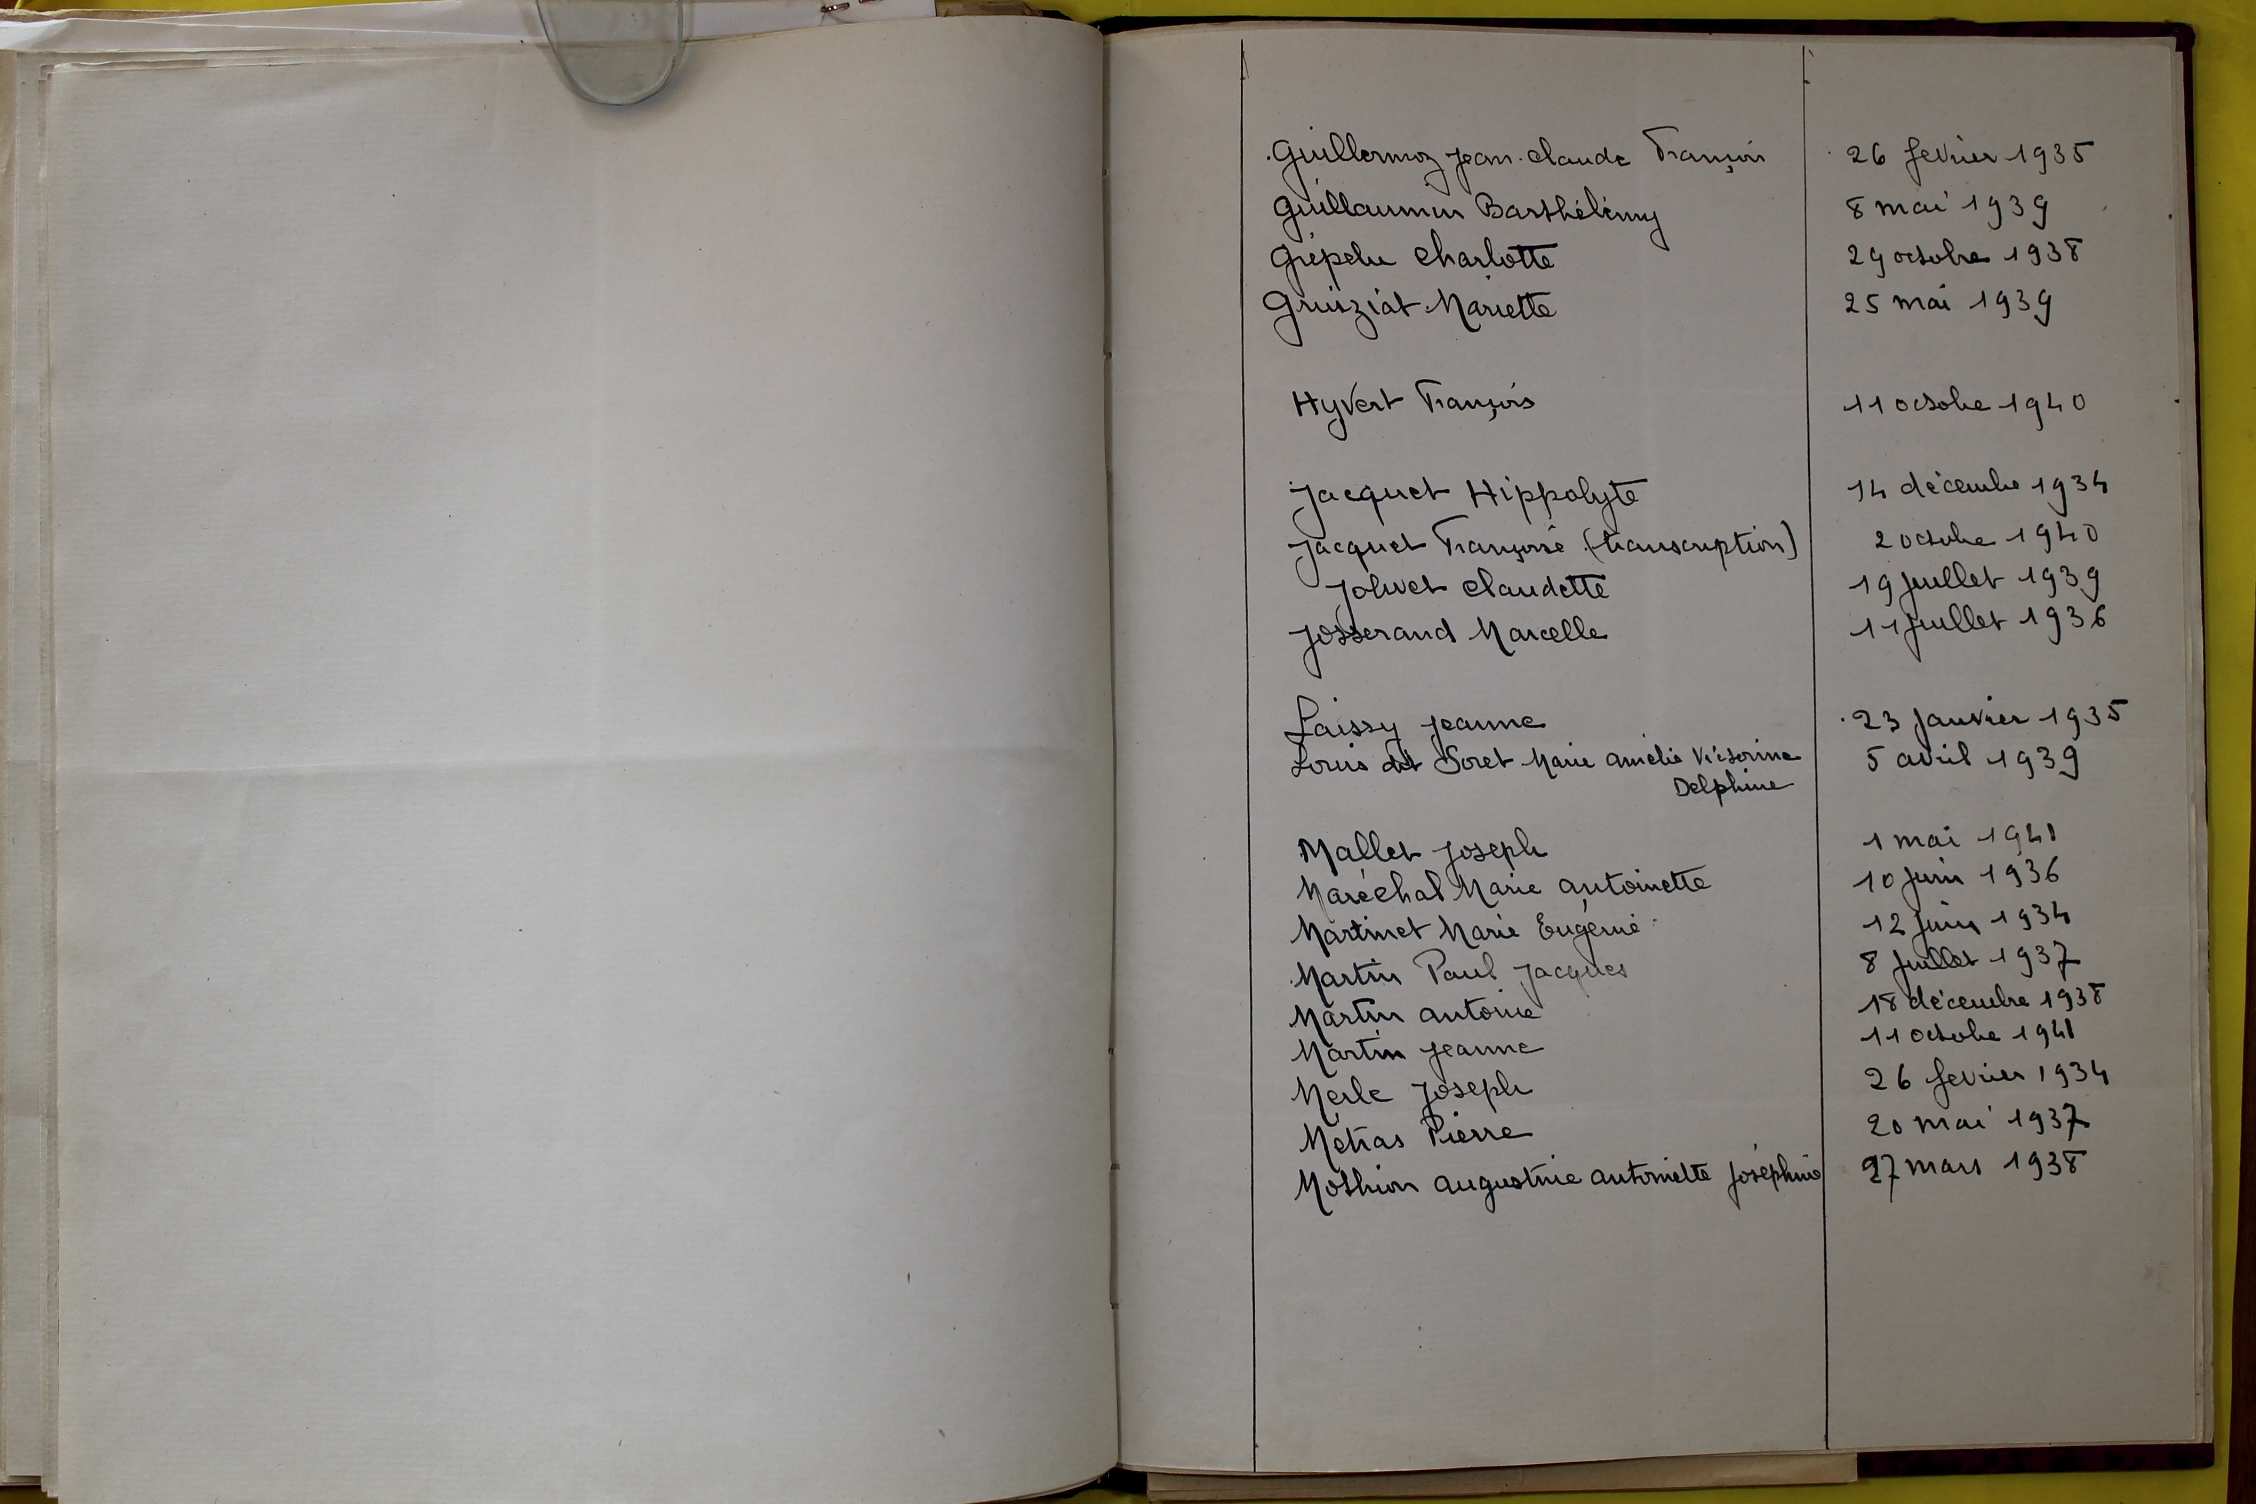 Guillermoz Jean-Claude François 26 fevrier 1935
Guillaumin Barthélémy 8 mai 1939
Grépelu Charlotte 29 octobre 1938
Gruiziat Mariette 25 mai 1939
Hyvert François 11 octobre 1940
Jacquet Hippolyte 14 décembre 1934
Jacquet Françoise (transcription) 2 octobre 1940
Jolivet Claudette 19 juillet 1939
Josserand Marcelle 11 juillet 1936
Laissy Jeanne 23 janvier 1935
Louis dit Soret Marie Amélie Victorine 5 avril 1939
Delphine
Mallet Joseph 1 mai 1941
Maréchal Marie Antoinette 10 juin 1936
Martinet Marie Eugénie 12 juin 1934
Martin Paul Jacques 8 juillet 1937
Martin Antoine 18 décembre 1938
Martin Jeanne 11 octobre 1941
Merle Joseph 26 fevrier 1934
Metras Pierre 20 mai 1937
Mothion Augustine Antoinette Joséphine 27 mars 1938